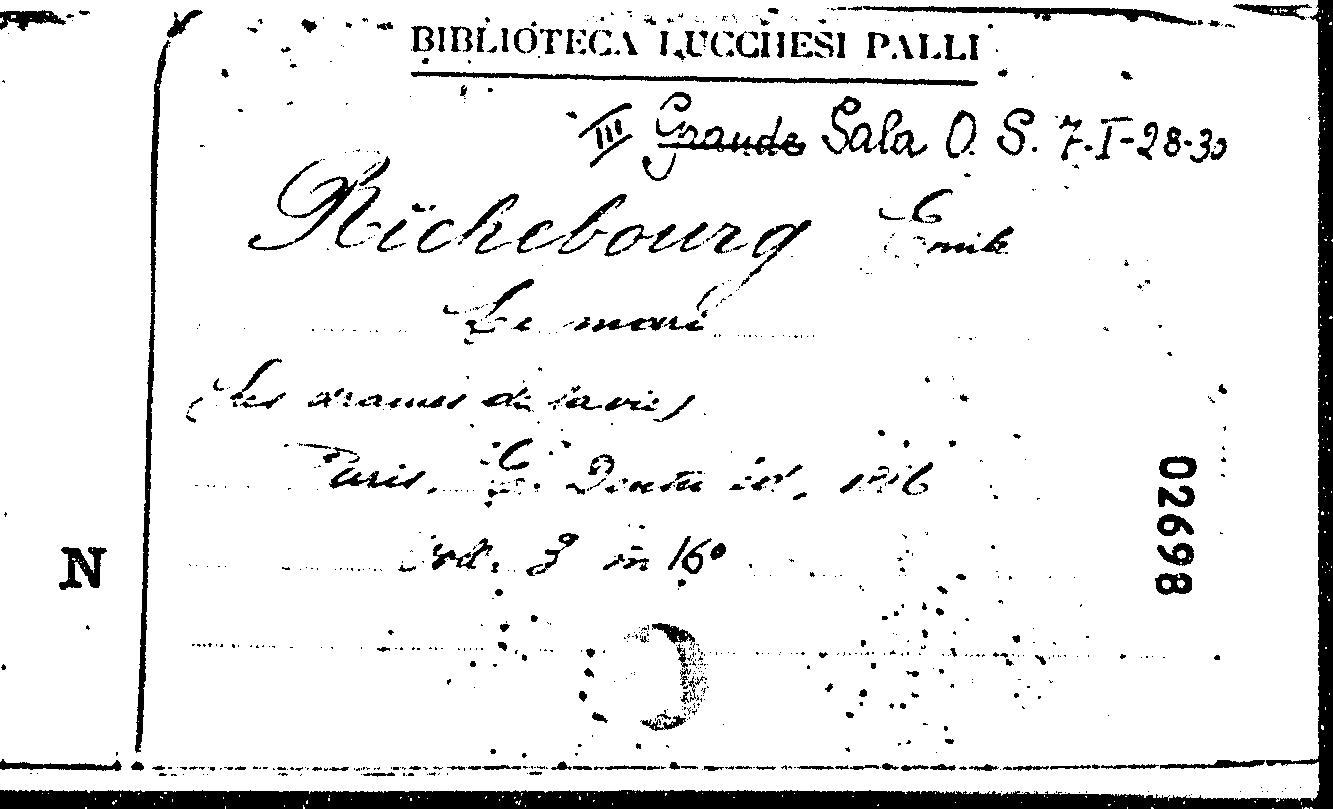 BIBLIOTECA LUCCHESI PALLI
III Grande Sala O. S. 7-I-28-30
Richebourg Emile
Le mari
(Les drames de la vie)
Paris, E. Dentu éd.
Vol. 3 in 16°
N
02698